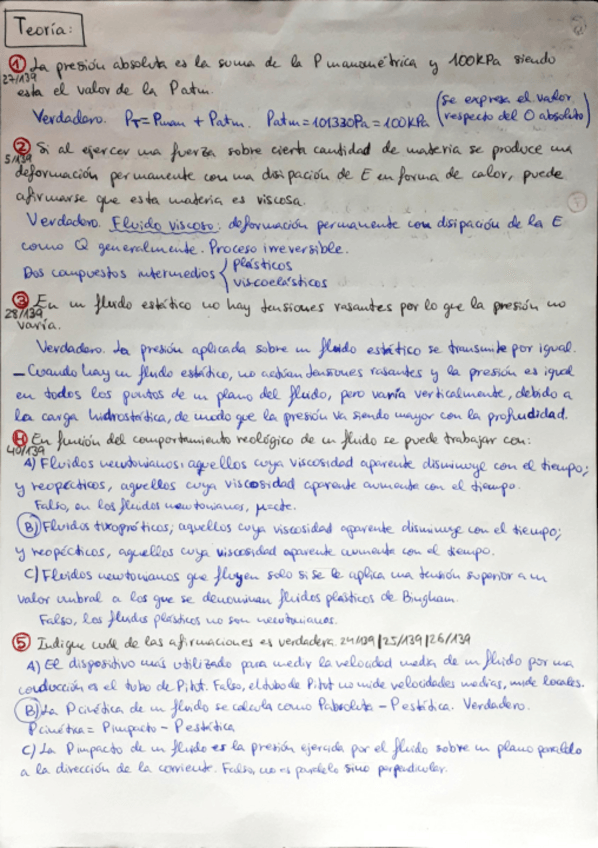 Teoría:
① La presión absoluta es la suma de la P manométrica y 100KPa siendo
27/139
esta el valor de la Patm.
Verdadero. PT = Pman + Patm. Patm = 101330Pa = 100KPa (se expresa el valor
respecto del 0 absoluto)
② Si al ejercer una fuerza sobre cierta cantidad de materia se produce una
5/139
deformación permanente con una disipación de E en forma de calor, puede
afirmarse que esta materia es viscosa.
Verdadero. Fluido viscoso: deformación permanente con disipación de la E
como Q generalmente. Proceso irreversible.
Dos compuestos intermedios { plásticos
viscoelásticos
③ En un fluido estático no hay tensiones rasantes por lo que la presión no
28/139
varía.
Verdadero. La presión aplicada sobre un fluido estático se transmite por igual.
- Cuando hay un fluido estático, no actúan tensiones rasantes y la presión es igual
en todos los puntos de un plano del fluido, pero varía verticalmente, debido a
la carga hidrostática, de modo que la presión va siendo mayor con la profundidad.
④ En función del comportamiento reológico de un fluido se puede trabajar con:
40/139
A) Fluidos newtonianos: aquellos cuya viscosidad aparente disminuye con el tiempo;
y reopécticos, aquellos cuya viscosidad aparente aumenta con el tiempo.
Falso, en los fluidos newtonianos, μ=cte.
B) Fluidos tixopróticos; aquellos cuya viscosidad aparente disminuye con el tiempo;
y reopécticos, aquellos cuya viscosidad aparente aumenta con el tiempo.
C) Fluidos newtonianos que fluyen solo si se le aplica una tensión superior a un
valor umbral a los que se denominan fluidos plásticos de Bingham.
Falso, los fluidos plásticos no son newtonianos.
⑤ Indique cuál de las afirmaciones es verdadera. 24/139 | 25/139 | 26/139
A) El dispositivo más utilizado para medir la velocidad media de un fluido por una
conducción es el tubo de Pitot. Falso, el tubo de Pitot no mide velocidades medias, mide locales.
B) La P cinética de un fluido se calcula como Pabsoluta - Pestática. Verdadero.
Pcinética = Pimpacto - Pestática
C) La Pimpacto de un fluido es la presión ejercida por el fluido sobre un plano paralelo
a la dirección de la corriente. Falso, no es paralelo sino perpendicular.